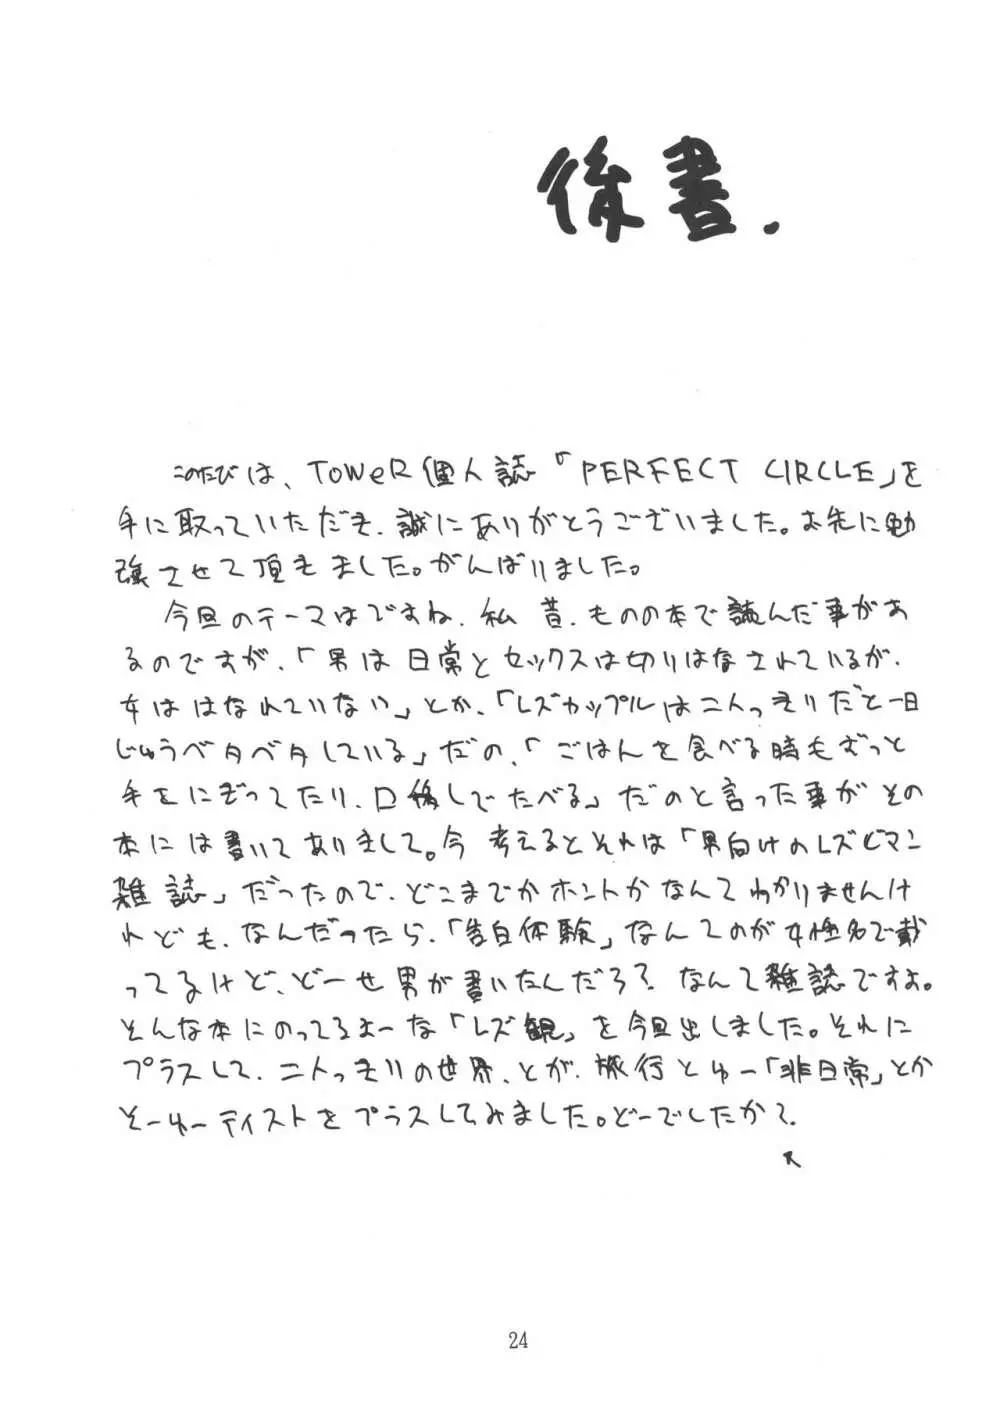 後書.
このたびは、ToWeR個人誌「PERFECT CIRCLE」を
手に取っていただき、誠にありがとうございました。お先に勉
強させて頂きました。がんばりました。
今回のテーマはですね、私 昔、ものの本で読んだ事があ
るのですが、「男は日常とセックスは切りはなされているが、
女ははなれていない」とか、「レズカップルは二人っきりだと一日
じゅうベタベタしている」だの、「ごはんを食べる時もずっと
手をにぎってたり、口移しでたべる」だのと言った事がその
本には書いてありまして。今 考えるとそれは「男向けのレズビアン
雑誌」だったので、どこまでかホントかなんてわかりませんけ
れども、なんだったら、「告白体験」なんてのが女性名で載
ってるけど、どーせ男が書いたんだろ？なんて雑誌ですよ。
そんな本にのってるよーな「レズ観」を今回出しました。それに
プラスして、二人っきりの世界、とか、旅行とゆー「非日常」とか
そーゆーテイストをプラスしてみました。どーでしたか？
R
24